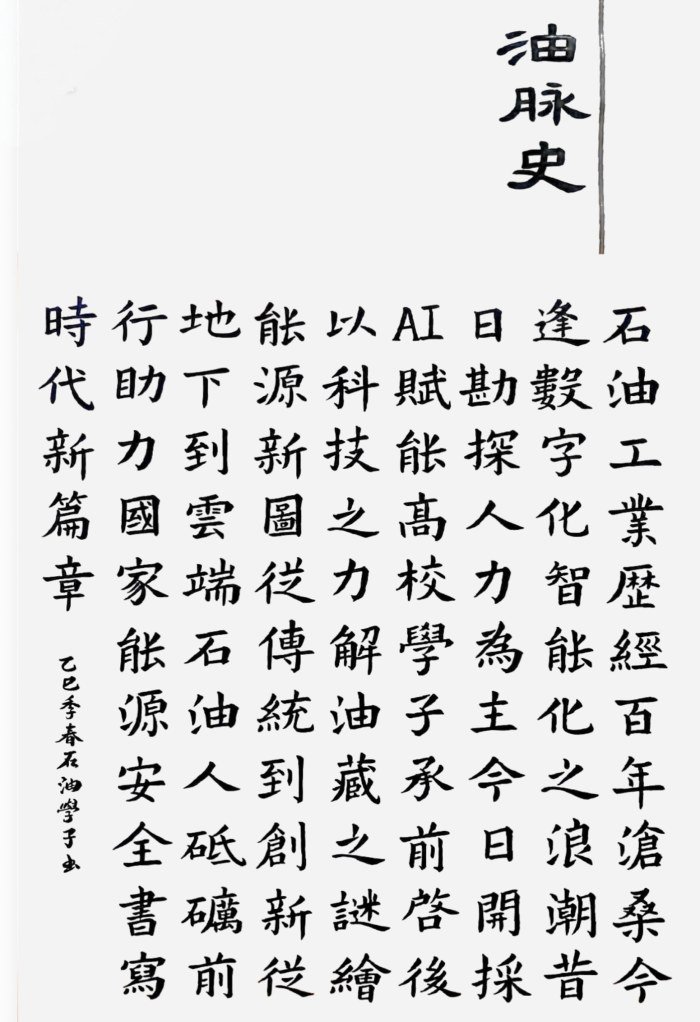 油脉史
石油工業歷經百年滄桑今
逢數字化智能化之浪潮昔
日勘探人力為主今日開採
AI賦能高校學子承前啓後
以科技之力解油藏之謎繪
能源新圖從傳統到創新從
地下到雲端石油人砥礪前
行助力國家能源安全書寫
時代新篇章
乙巳季春石油學子書